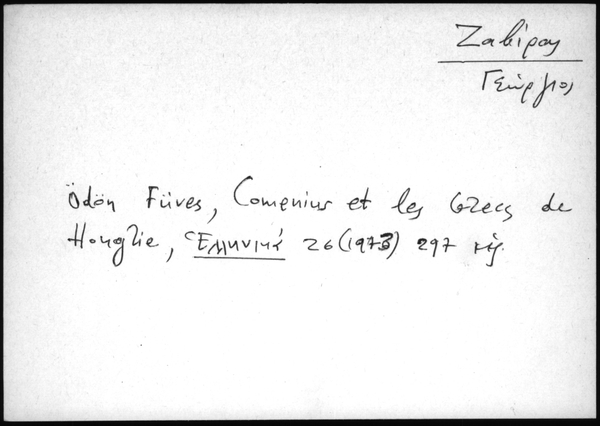 Ζαβίρας
Γεώργιος
Ödön Füves, Comenius et les Grecs de
Hongrie, Ἑλληνικά 26 (1973) 297 κἑξ.